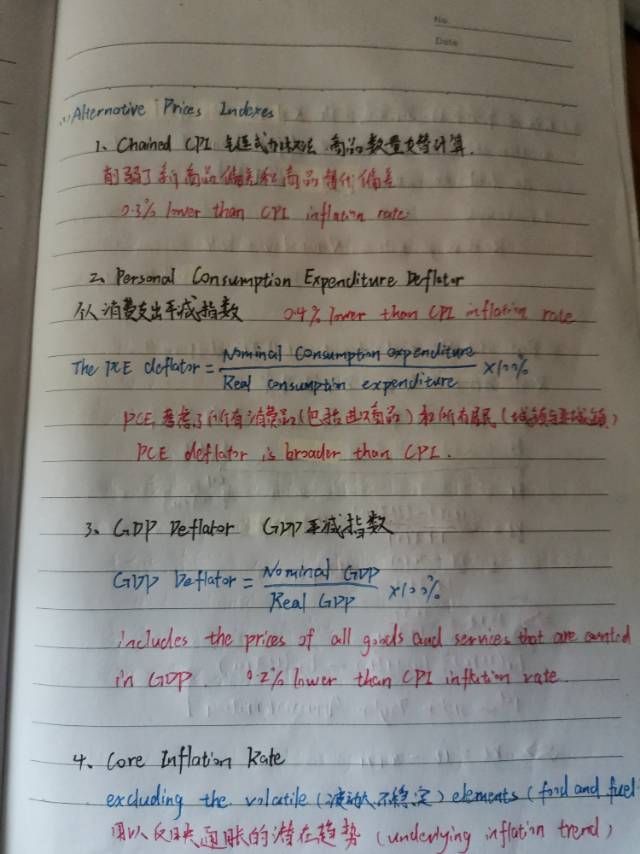 No
Date
Alternative Prices Indexes
1、Chained CPI 链式加权法 商品数量支替计算.
削弱了新商品偏差和商品替代偏差
0.3% lower than CPI inflation rate
2、Personal Consumption Expenditure Deflator
个人消费支出平减指数 0.4% lower than CPI inflation rate
The PCE deflator = Nominal consumption expenditure / Real consumption expenditure ×100%
PCE考虑了所有消费品(包括进口商品)和所有居民(城镇与非城镇)
PCE deflator is broader than CPI.
3、GDP Deflator GDP平减指数
GDP Deflator = Nominal GDP / Real GDP ×100%
includes the prices of all goods and services that are counted
in GDP 0.2% lower than CPI inflation rate.
4、Core Inflation Rate
excluding the volatile (波动大,不稳定) elements (food and fuel
用以反映通胀的潜在趋势 (underlying inflation trend)